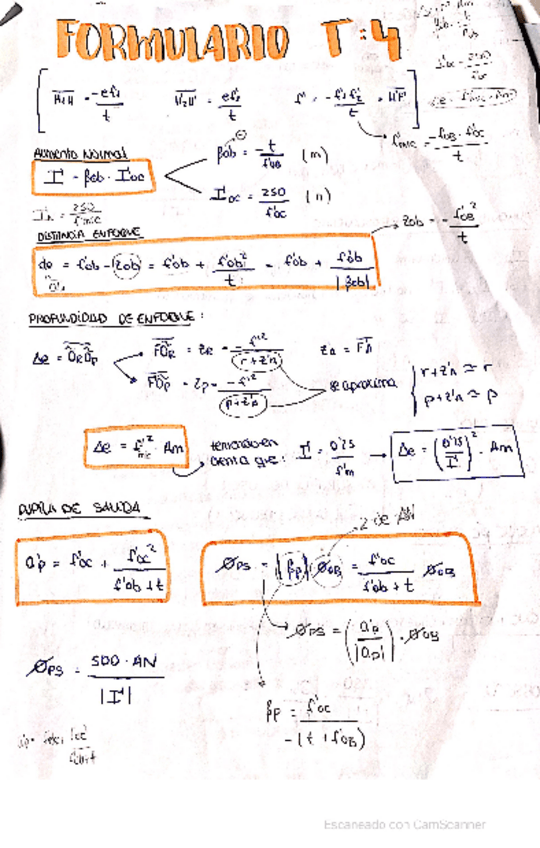 FORMULARIO T:4
H₁H = -ef'₁/t    H'₂H' = ef'₂/t    f' = -f'₁f'₂/t = H'F'
f'mic = -f'ob · f'oc/t
AUMENTO NORMAL
Γ = βob · Γoc
βob = -t/f'ob (m)
Γoc = 250/f'oc (n)
Γ = 250/f'mic
DISTANCIA ENFOQUE
zob = -f'ob²/t
de = f'ob - zob = f'ob + f'ob²/t = f'ob + f'ob/|βob|
PROFUNDIDAD DE ENFOQUE:
Δe = OROP
FOR = zR = -f'²/(r+z'A)    zA = FA
FOP = zP = -f'²/(p+z'A)
se aproxima
r+z'A ≃ r
p+z'A ≃ p
Δe = f'²mic · Am
teniendo en cuenta que: Γ = 0'25/f'm → Δe = (0'25/Γ)² · Am
PUPILA DE SALIDA
2·de·AN
a'p = f'oc + f'oc²/f'ob+t
ØPS = |βp| ØOB = f'oc/f'ob+t ØOB
ØPS = (a'p/|ap|) · ØOB
ØPS = 500 · AN/|Γ|
βp = f'oc/-(t + f'OB)
Escaneado con CamScanner